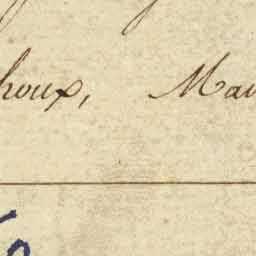 houx, Mau